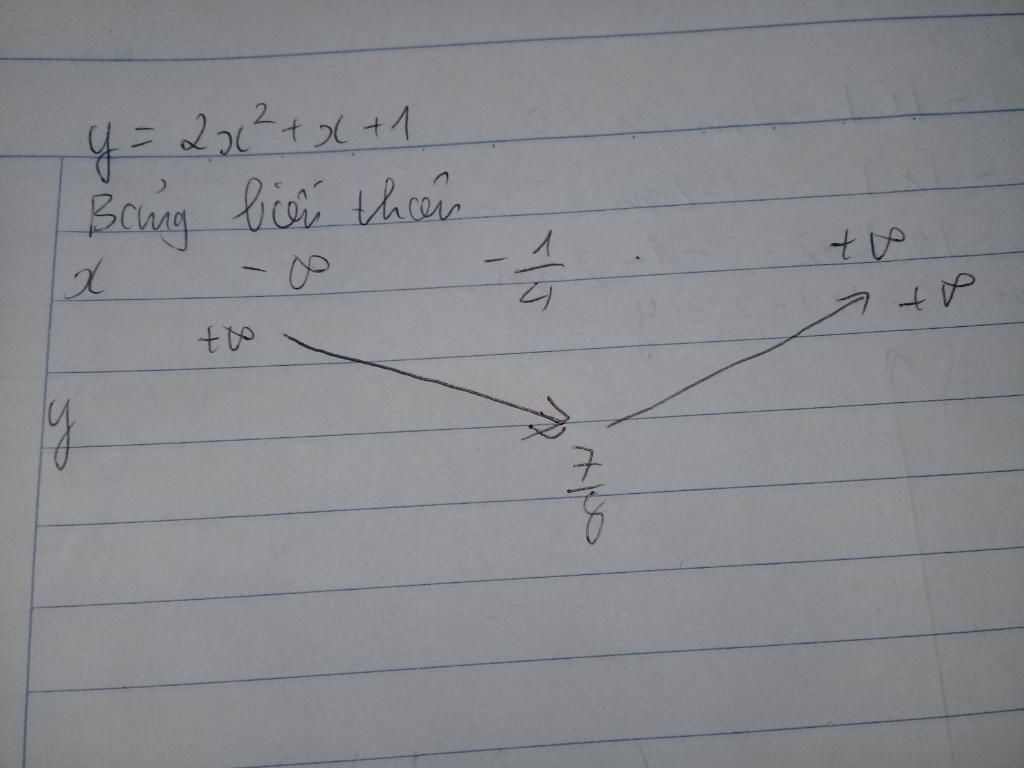 y = 2x² + x + 1
Bảng biến thiên
x -∞ -1/4 +∞
+∞ +∞
y
7/8